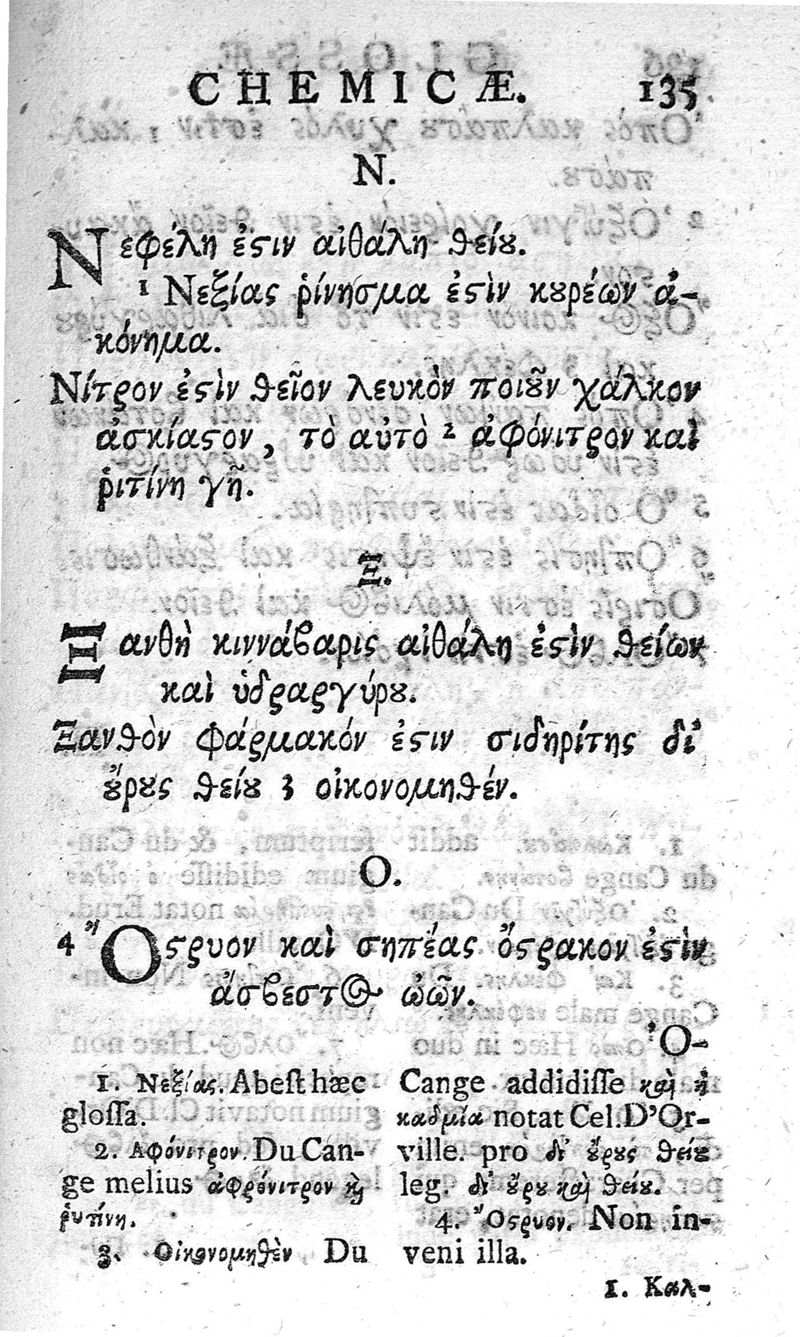 CHEMICÆ. 135
N.
Νεφέλη ἐϛιν αἰθάλη θείȣ.
1 Νεξίας ῥίνησμα ἐϛὶν κȣρέων ἀ-
κόνημα.
Νίτρον ἐϛὶν θεῖον λευκὸν ποιȣ͂ν χάλκον
ἀσκίαϛον, τὸ αὐτὸ 2 ἀφόνιτρον καὶ
ῥιτίνη γῆ.
Ξ.
Ξανθὴ κιννάβαρις αἰθάλη ἐϛὶν θείων
καὶ ὑδραργύρȣ.
Ξανθὸν φάρμακόν ἐϛιν σιδηρίτης δι'
ȣ̓́ρȣς θείȣ 3 οἰκονομηθέν.
O.
4 Ὄϛρυον καὶ σηπέας ὄϛρακον ἐϛὶν
ἄσβεστος ὠῶν.
Ὀ-
1. Νεξίας. Abest hæc
glossa.
2. Αφόνιτρον. Du Can-
ge melius ἀφρόνιτρον καὶ
ῥυτίνη.
3. Οἰκονομηθὲν Du
Cange addidisse καὶ ἡ
καδμία notat Cel. D'Or-
ville. pro δι' ȣ̓́ρȣς θείȣ
leg. δι' ȣ̓́ρȣ καὶ θείȣ.
4. Ὄϛρυον. Non in-
veni illa.
1. Καλ-